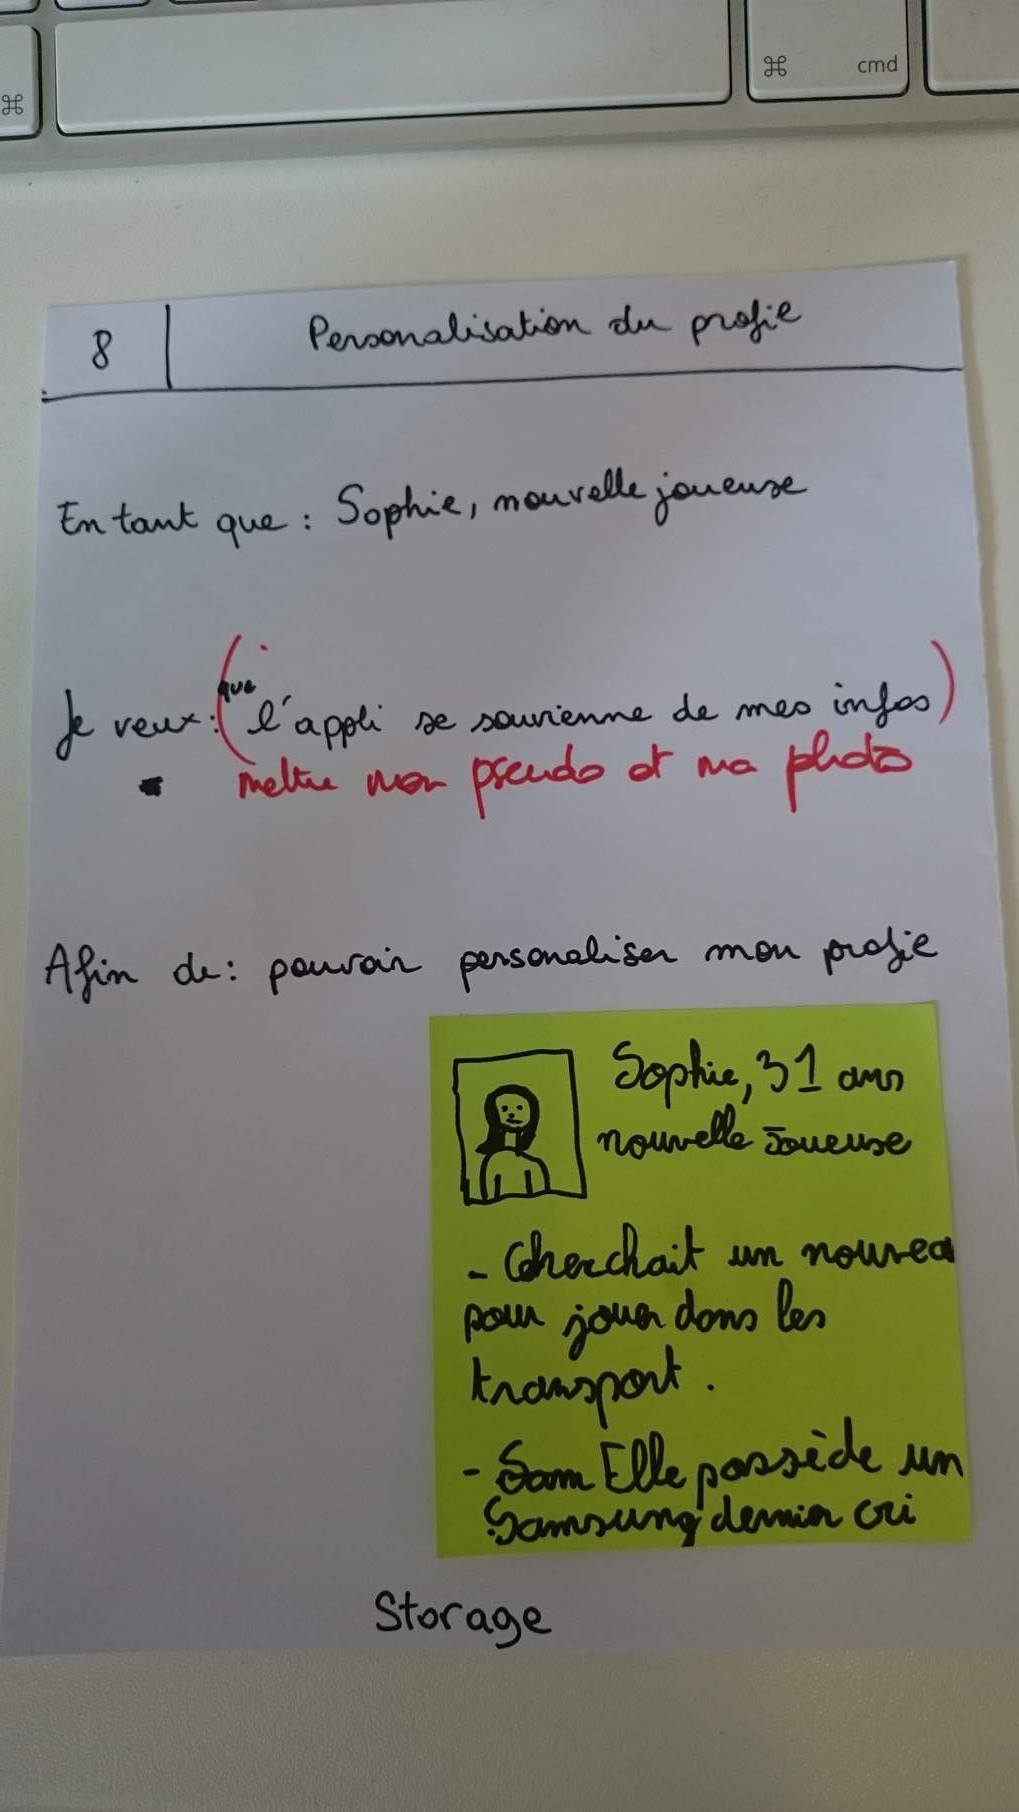 ⌘ cmd
⌘
8 Personalisation du profie
En tant que : Sophie, nouvelle joueuse
que
Je veux : (l'appli se souvienne de mes infos)
mettre mon pseudo et ma photo
Afin de : pouvoir personaliser mon profie
Sophie, 31 ans
nouvelle Joueuse
- Cherchait un nouvea
pour jouer dans les
transport.
- Sam Elle possède un
Samsung dernier cri
Storage